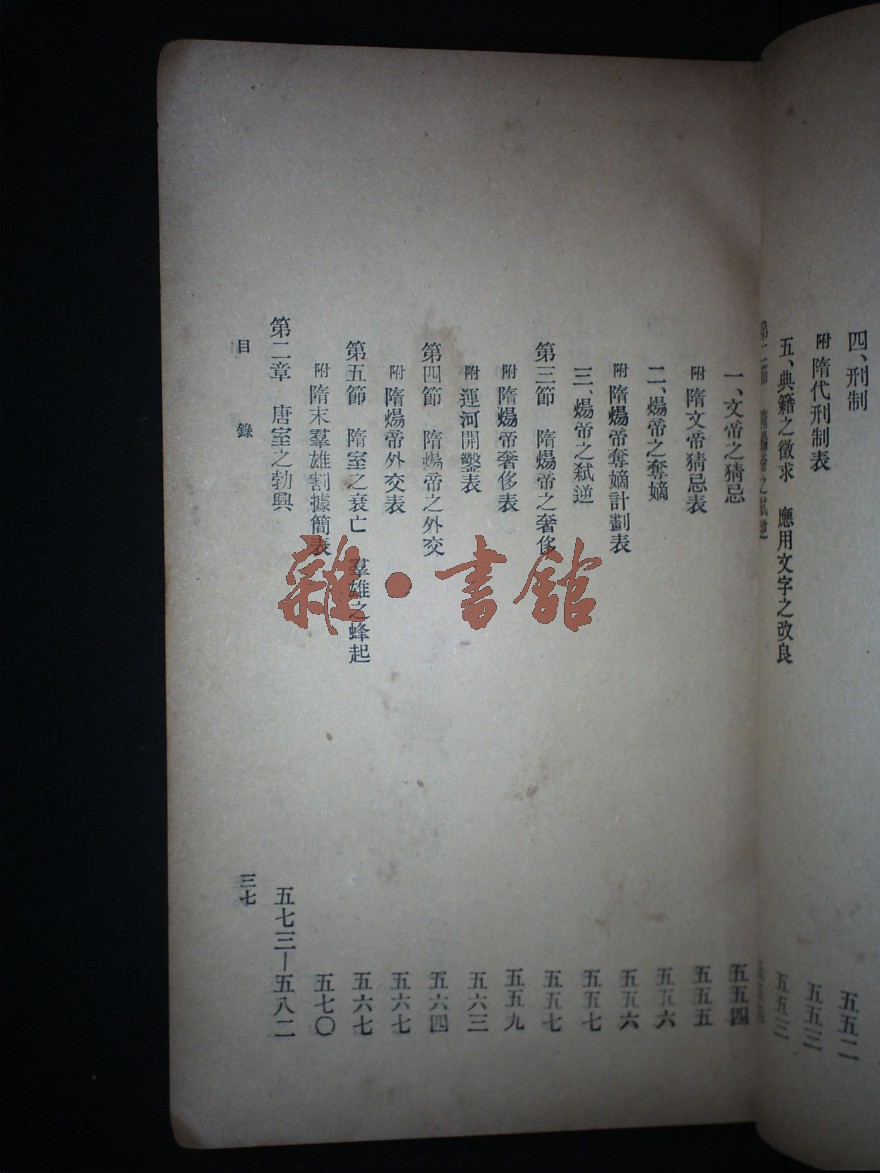 四、刑制 五五二
附 隋代刑制表 五五三
五、典籍之徵求 應用文字之改良 五五三
第二節 隋煬帝之弒逆
一、文帝之猜忌 五五四
附 隋文帝猜忌表 五五五
二、煬帝之奪嫡 五五六
附 隋煬帝奪嫡計劃表 五五六
三、煬帝之弒逆 五五七
第三節 隋煬帝之奢侈 五五七
附 隋煬帝奢侈表 五五九
附 運河開鑿表 五六三
第四節 隋煬帝之外交 五六四
附 隋煬帝外交表 五六七
第五節 隋室之衰亡 羣雄之蜂起 五六七
附 隋末羣雄割據簡表 五七〇
第二章 唐室之勃興 五七三—五八二
目錄 三七
雜·書館